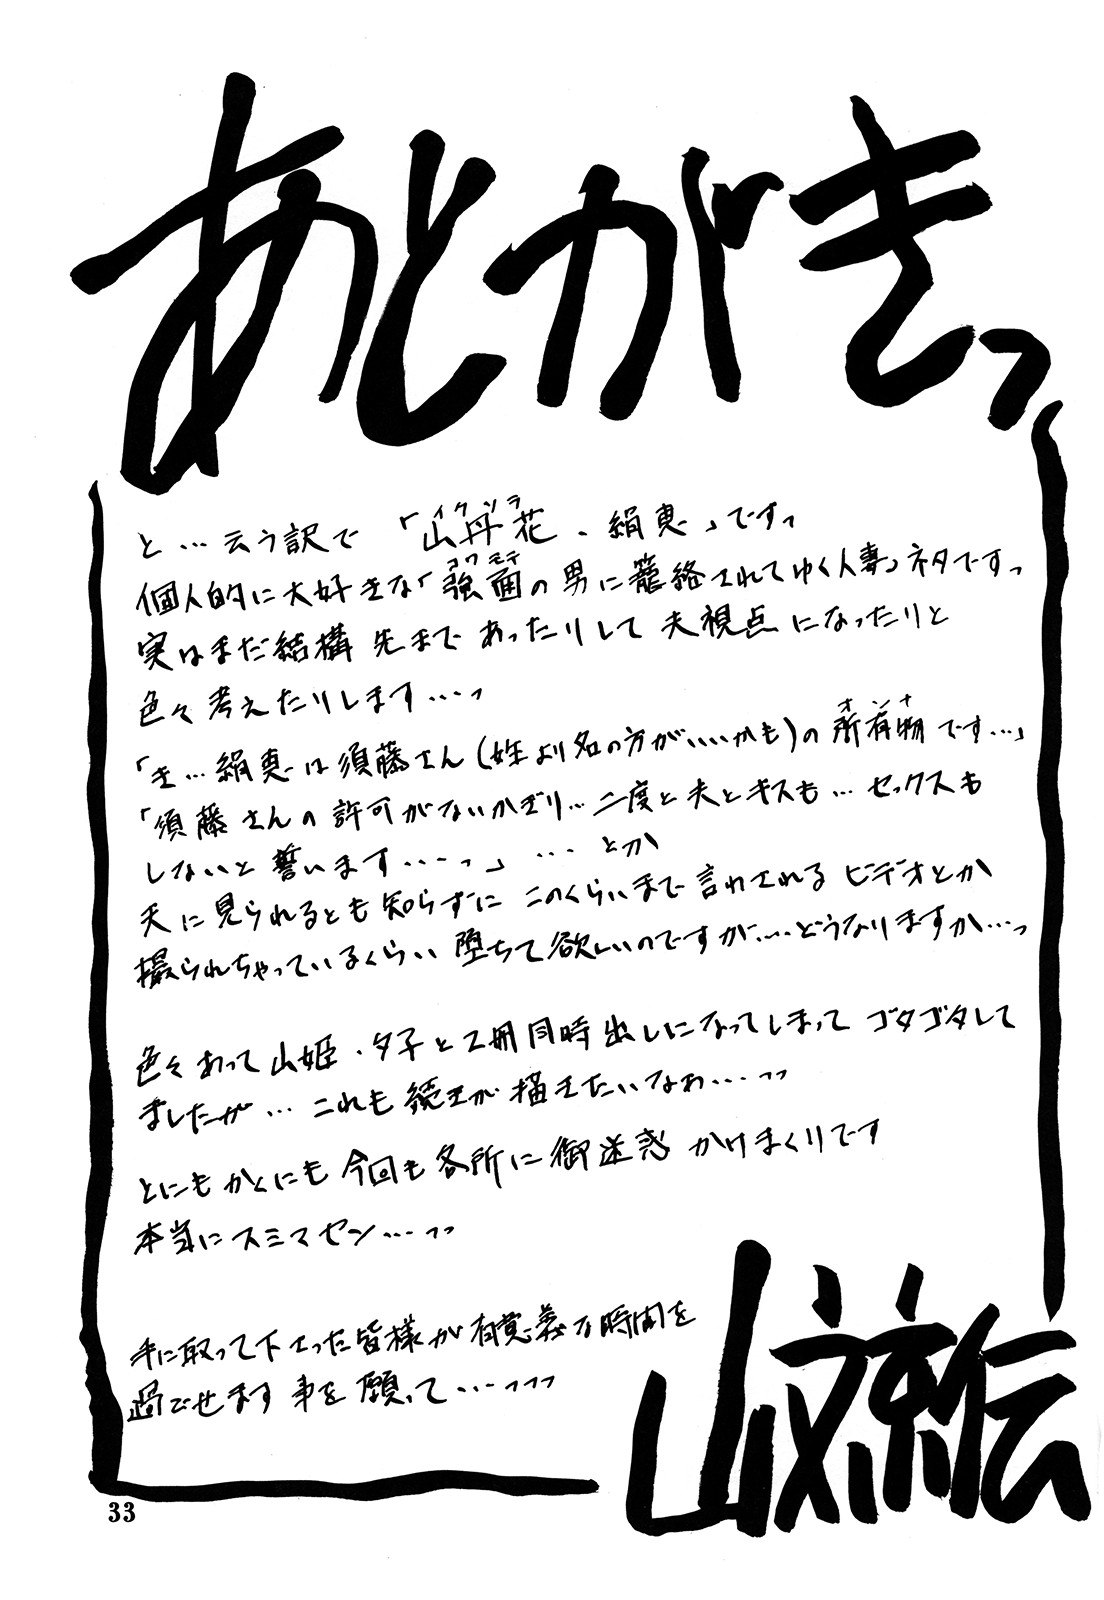 あとがきっ
と…云う訳で「山丹花、絹恵」ですっ
イクソラ
個人的に大好きな「強面の男に籠絡されてゆく人妻」ネタですっ
コワモテ
実はまだ結構先まであったりして夫視点になったりと
色々考えたりします…っ
「き…絹恵は須藤さん(姓より名の方がいいかも)の所有物です…」
オンナ
「須藤さんの許可がないかぎり…二度と夫とキスも…セックスも
しないと誓います……っ」…とか
夫に見られるとも知らずにこのくらいまで言わされるビデオとか
撮られちゃっているくらい堕ちて欲しいのですが……どうなりますか…っ
色々あって山姫・夕子と2冊同時出しになってしまってゴタゴタして
ましたが…これも続きが描きたいなぁ…っっ
とにもかくにも今回も各所に御迷惑かけまくりです
本当にスミマセン…っっ
手に取って下さった皆様が有意義な時間を
過ごせます事を願って…っっっ
山文京伝
33